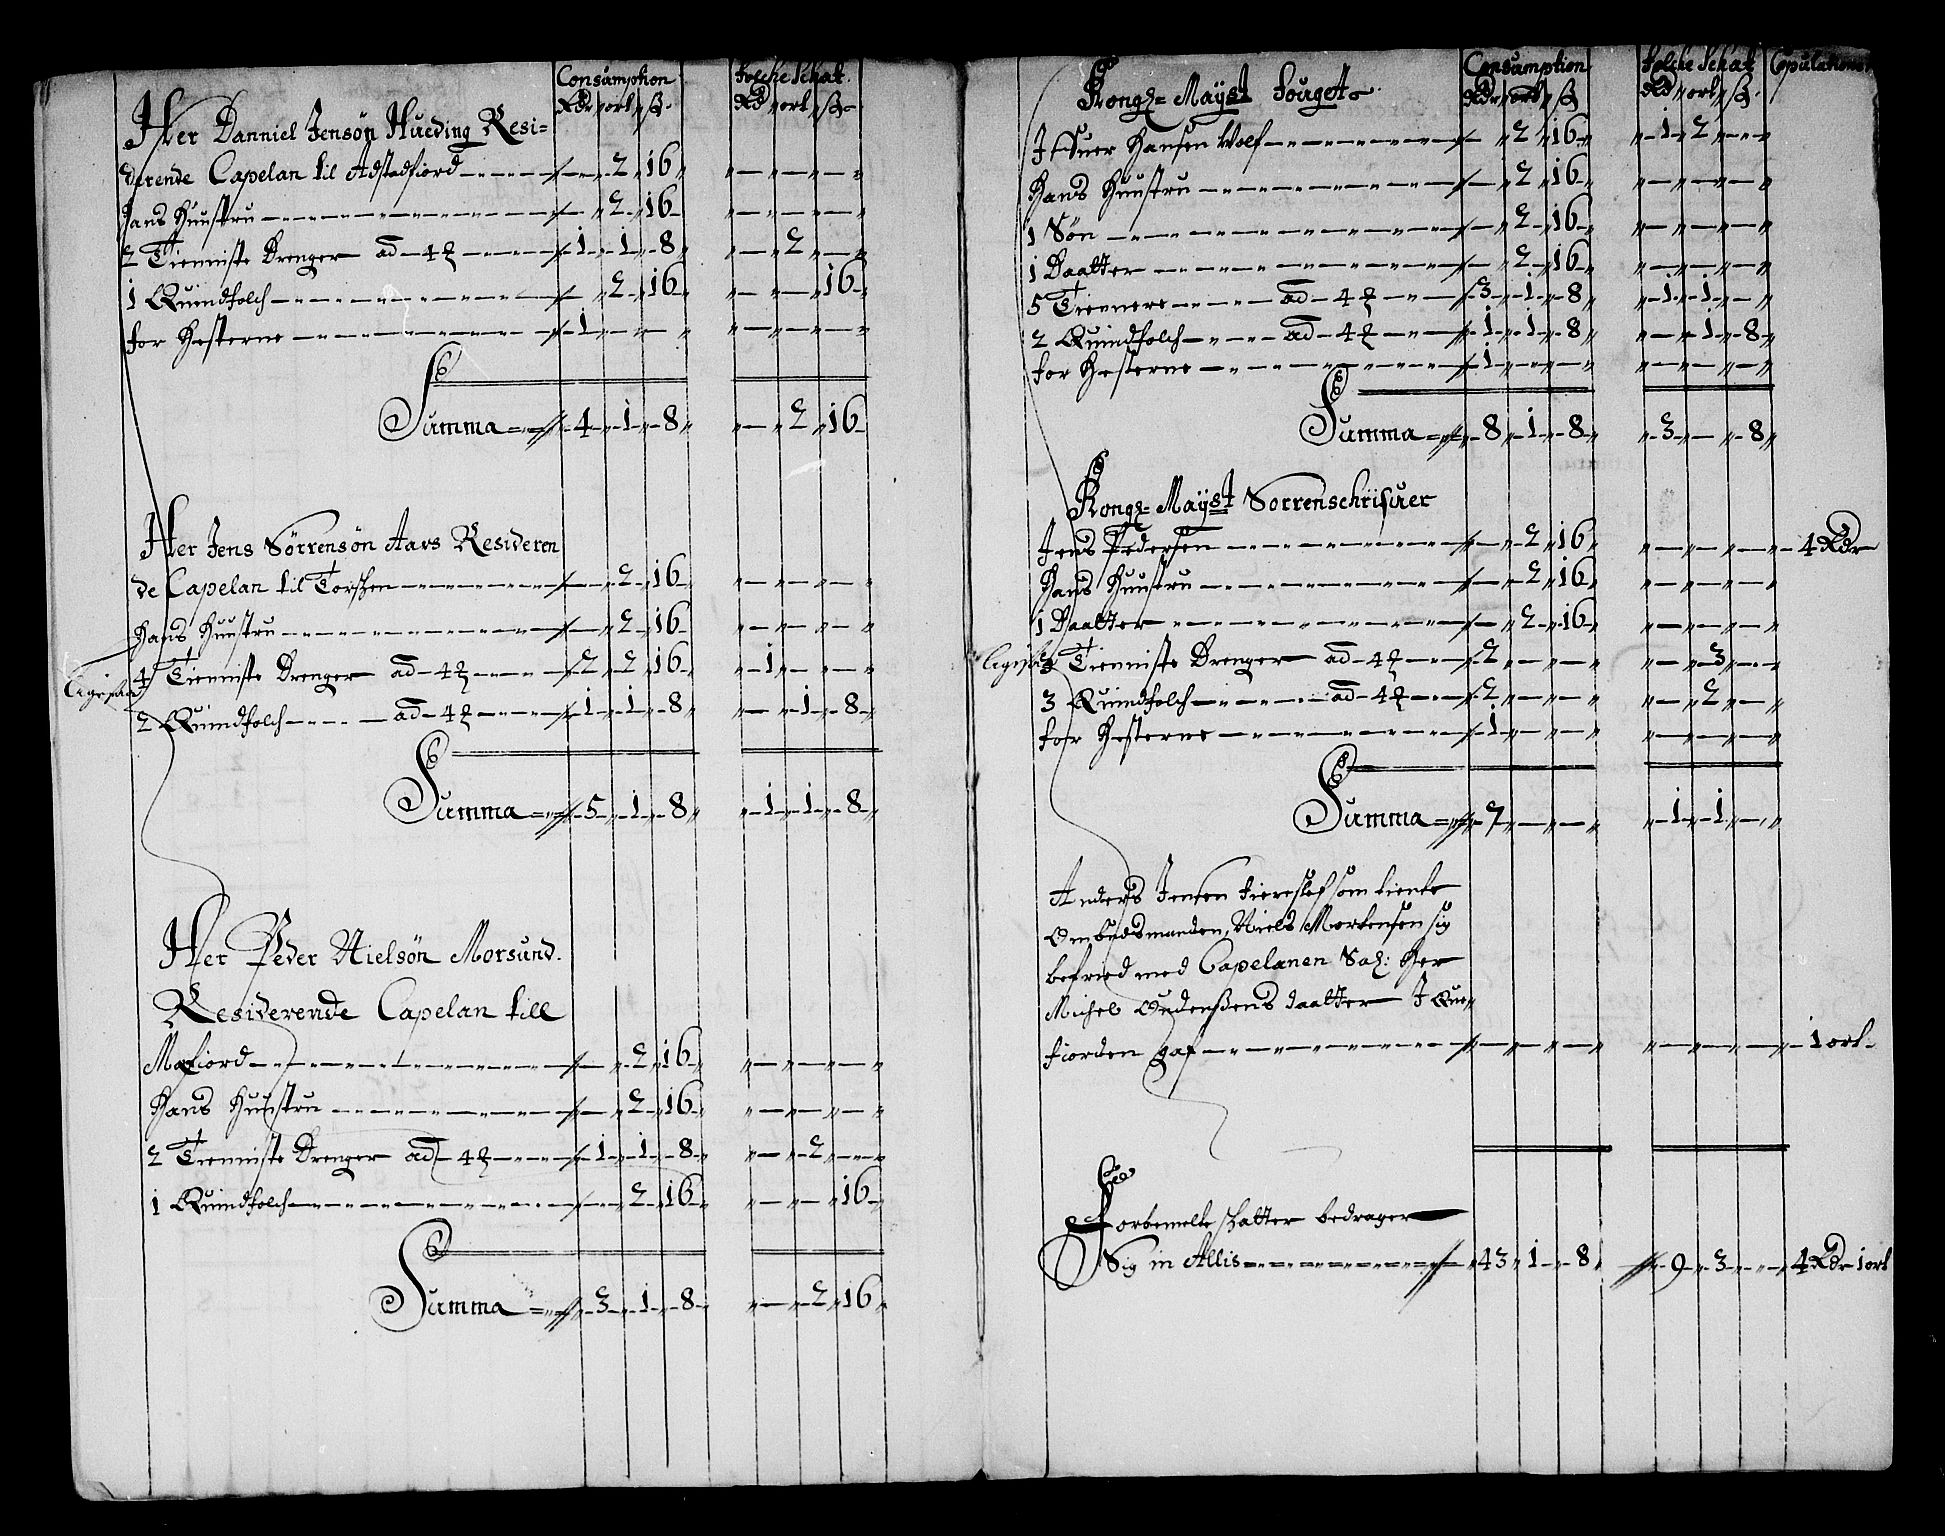 Consumption Folche Schat.
Rdr ort ß. Rd ort ß
Her Danniel Jensøn Hueding Resi=
derende Capelan til Adstadfiord - 2 16
hans Huustru - 2 16
2 Tienniste Drenger ad 4 1 1 8 - 2
1 Quindfolch - 2 16 - 16
for Hesterne 1
Summa 4 1 8 - 2 16
Her Jens Sörrensön Aars Resideren
de Capelan til Torschen - 2 16
Hans Huustru - 2 16
4 Tienniste Drenger ad 4 2 2 16 1
2 Quindfolch ad 4 1 1 8 - 1 8
Summa 5 1 8 1 1 8
Her Peder Nielsön Morsund.
Residerende Capelan till
Mefiord - 2 16
Hans Huustru - 2 16
2 Tienniste Drenger ad 4 1 1 8 - 2
1 Quindfolch - 2 16 - 16
Summa 3 1 8 - 2 16
Consumption Folche Schat Copulations
Rdr ort ß Rd ort ß.
Kongs= Mayst Fouget
Ifuer Hansen Wolf - 2 16 1 2
Hans Huustru - 2 16
1 Søn - 2 16
1 Daatter - 2 16
5 Tiennere ad 4 3 1 8 1 1
2 Quindfolch ad 4 1 1 8 - 1 8
for Hesterne 1
Summa 8 1 8 3 - 8
Kongs= Mayst Sorrenschrifuer
Jens Pedersen - 2 16 4 Rdr
Hans Huustru - 2 16
1 Daatter - 2 16
3 Tienniste Drenger ad 4 2 - 3
3 Quindfolch ad 4 2 - 2
for Hesterne 1
Summa 7 1 1
Anders Jensen som tiente
Ombudsmanden, Niels Mortensen sig
befried med Capelanen Sal: Her
Michel daatter J Que=
fiorden gaf 1 ort
Forbemelte schatter bedrager
Sig in Allis 43 1 8 9 3 - 4 Rdr 1 ort